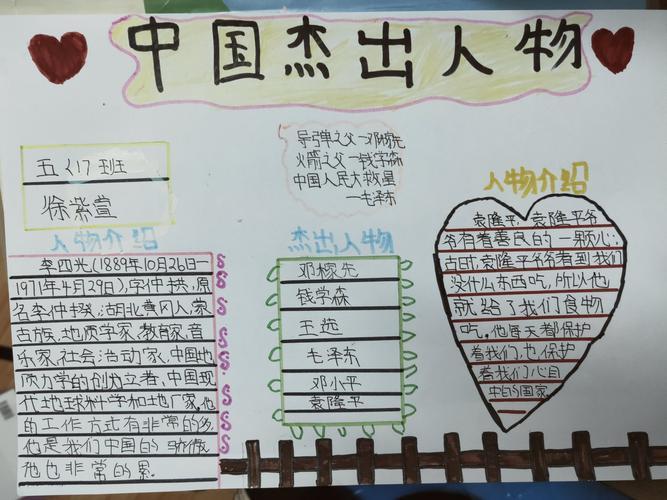 中国杰出人物
五〈1〉班
徐紫萱
导弹之父一邓稼先
火箭之父一钱学森
中国人民大救星
一毛泽东
人物介绍
李四光(1889年10月26日一
1971年4月29日),字仲拱,原
名李仲揆,湖北黄冈人,蒙
古族,地质学家,教育家,音
乐家,社会活动家,中国地
质力学的创立者,中国现
代地球科学和地厂家,他
的工作方式有非常的多,
他是我们中国的骄傲
他也非常的累.
杰出人物
邓稼先
钱学森
王选
毛泽东
邓小平
袁隆平
人物介绍
袁隆平,袁隆平爷
爷有着善良的一颗心;
古时,袁隆平爷爷看到我们
没什么东西吃,所以他
就给了我们食物
吃。他每天都保护
着我们,也保护
着我们心目
中的国家.